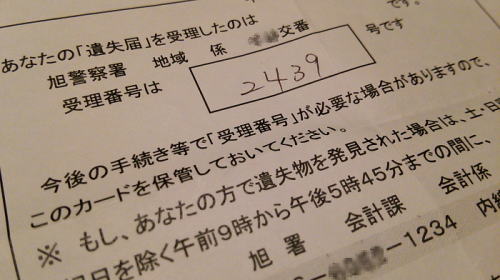 です。
あなたの「遺失届」を受理したのは
旭警察署 地域 係 交番
受理番号は 2439 号です
今後の手続き等で「受理番号」が必要な場合がありますので、
このカードを保管しておいてください。
※ もし、あなたの方で遺失物を発見された場合は、土・日
日を除く午前9時から午後5時45分までの間に、
旭 署 会計課 会計係
-1234 内線